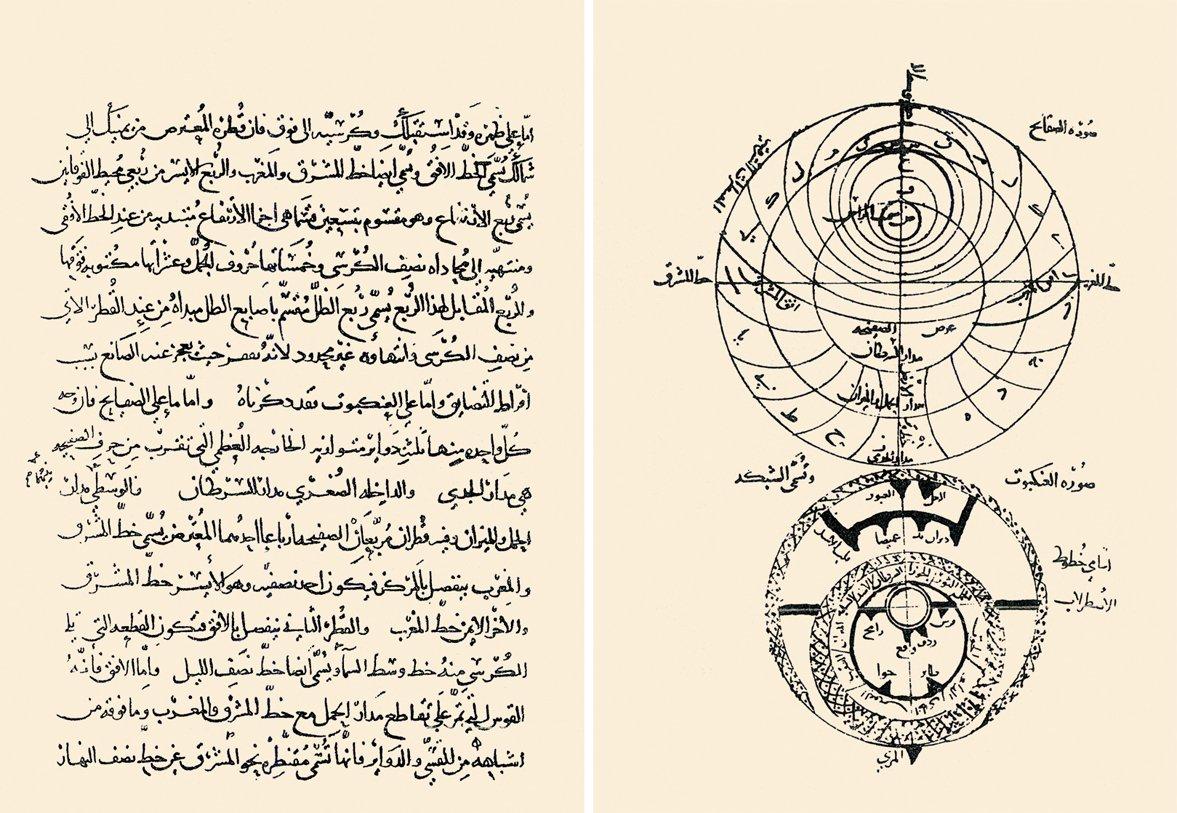 اما على ظهره وقد استقبلك وكرسيه الى فوق فان قطره المعترض من يمينك الى
شمالك يسمى الخط الافقى ويسمى ايضا خط المشرق والمغرب والربع الايسر من ربعى محيطه الفوقانيين
يسمى ربع الارتفاع وهو مقسوم بتسعين قسما هى اجزا الارتفاع مبتديه من عند الخط الافقى
ومنتهيه الى محاذاه نصف الكرسى وخمساتها حروف الجمل وعشراتها مكتوبه فوقها
والربع المقابل لهذا الربع يسمى ربع الظل مقسم باصابع الظل مبداه من عند القطر الاتى
من نصف الكرسى وانتهاوه غير محدود لانه يقف حيث يعجز عنه الصانع بسبب
افراط التضايق واما على العنكبوت فقد ذكرناه واما ما على الصفايح فان وجه
كل واحده منها ثلث دواير متوازيه الخارجه العظمى التى تقرب من حرف الصفيحه
هى مدار الجدى والداخله الصغرى مدار السرطان والوسطى مدار
الحمل والميزان وفيه قطران يربعان الصفيحه ارباعا احدهما المعترض يسمى خط المشرق
والمغرب ينفصل بالمركز فيكون احد نصفيه وهو الايسر خط المشرق
والاخر الايمن خط المغرب والقطر الثانى ينفصل بالافق فتكون القطعه التى تلى
الكرسى منه خط وسط السما ويسمى ايضا خط نصف الليل واما الافق فانه
القوس التى تمر على تقاطع مدار الحمل مع خط المشرق والمغرب وما فوقه من
اشباهه من القسى والدواير فانها تسمى مقنطره نحو المشرق عن خط نصف النهار
صوره الصفايح
خط المشرق
خط المغرب
افق المشرق
افق المغرب
عرض الصفيحه
مدار السرطان
مدار الحمل والميزان
مدار الجدى
صوره العنكبوت
وتسمى الشبكه
اسامى خطوط
الاسطرلاب
العيوق
الدبران
رامح
ردف واقع
طاير
حوا
المرى